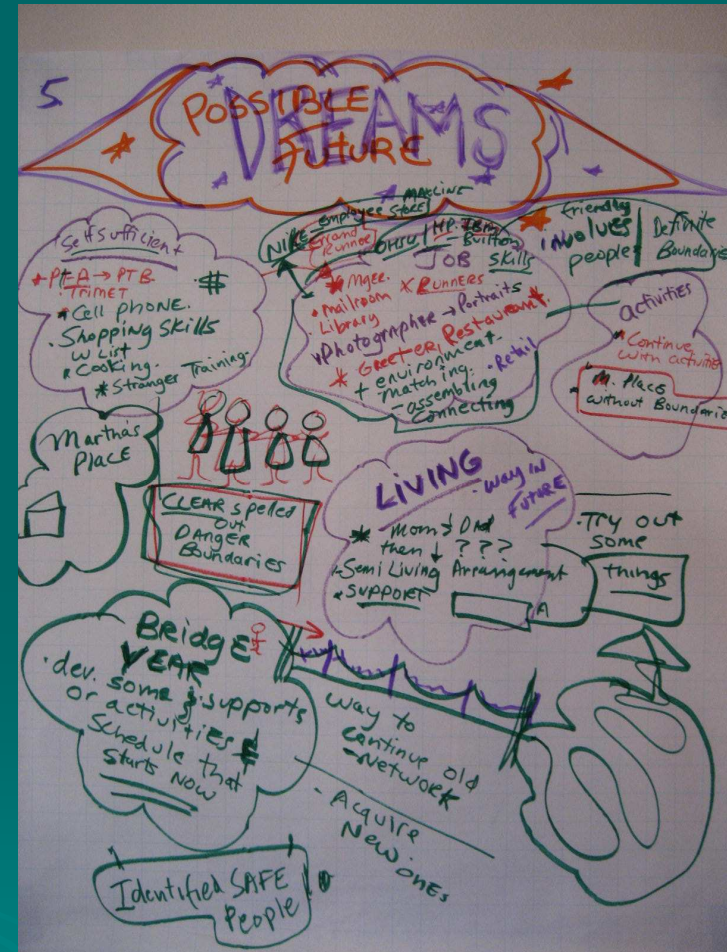 5
POSSIBLE
DREAMS
FUTURE
Self Sufficient
PT A → PT B
TRIMET
$
Cell PHONE.
Shopping Skills
w List
Cooking.
Stranger Training
NIKE - employee store
Errand
Runner
OHSU
HP IBM
Builton
JOB Skills
Mger.
mailroom X RUNNERS
Library
Photographer → Portraits
Greeter, Restaurant
+ environment.
matching. Retail
- assembling
Connecting
friendly
involves
people
Definite
Boundaries
activities
Continue
with activities
M. Place
without Boundaries
Martha's
Place
CLEAR spelled
out
DANGER
Boundaries
LIVING
way in
FUTURE
Mom & Dad
then ↓ ???
Semi Living Arrangement
SUPPORT
A
Try out
some
things
Bridge
YEAR
dev. some supports
or activities &
Schedule that
Starts Now
way to
continue old
- Network
- Acquire
New ones
Identified SAFE
People